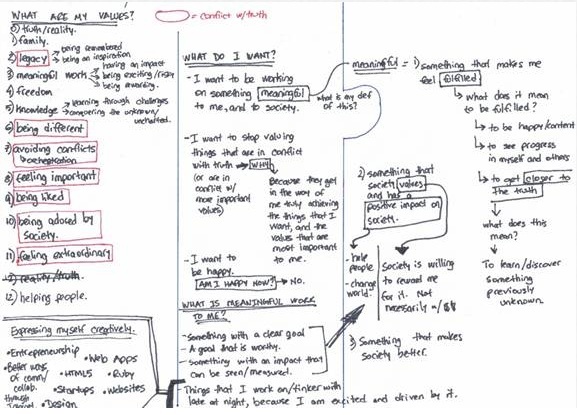 WHAT ARE MY VALUES?
= conflict w/truth
0) truth/reality.
1) family.
2) legacy → being remembered
→ being an inspiration
3) meaningful work → having an impact
→ being exciting/risky
→ being rewarding.
4) freedom
5) knowledge → learning through challenges
→ conquering the unknown/
uncharted.
6) being different
7) avoiding conflicts
→ orchestration
8) feeling important
9) being liked
10) being adored by
society.
11) feeling extraordinary
12) reality/truth.
12) helping people.
Expressing myself creatively.
• Entrepreneurship
• Better ways
of comm/
collab.
through
• Web Apps
• HTML5
• Ruby
• Startups
• Websites
• Design
WHAT DO I WANT?
- I want to be working
on something meaningful
to me, and to society.
what is my def
of this?
- I want to stop valuing
things that are in conflict
with truth → WHY
(or are in
conflict w/
more important
values)
Because they get
in the way of
me truly achieving
the things that I
want, and the
values that are
most important
to me.
- I want to
be happy.
AM I HAPPY NOW? → NO.
WHAT IS MEANINGFUL WORK
TO ME?
- Something with a clear goal
- A goal that is worthy.
- Something with an impact that
can be seen/measured.
- Things that I work on/tinker with
late at night, because I am excited and driven by it.
meaningful = 1) something that makes me
feel fulfilled
↳ what does it mean
to be fulfilled?
↳ to be happy/content
↳ to see progress
in myself and others
↳ to get closer to
the truth
what does this
mean?
To learn/discover
something
previously
unknown.
2) something that
society values
and has a
positive impact on
society.
- help
people
- change
world.
Society is willing
to reward me
for it. Not
necessarily w/
3) Something that makes
society better.